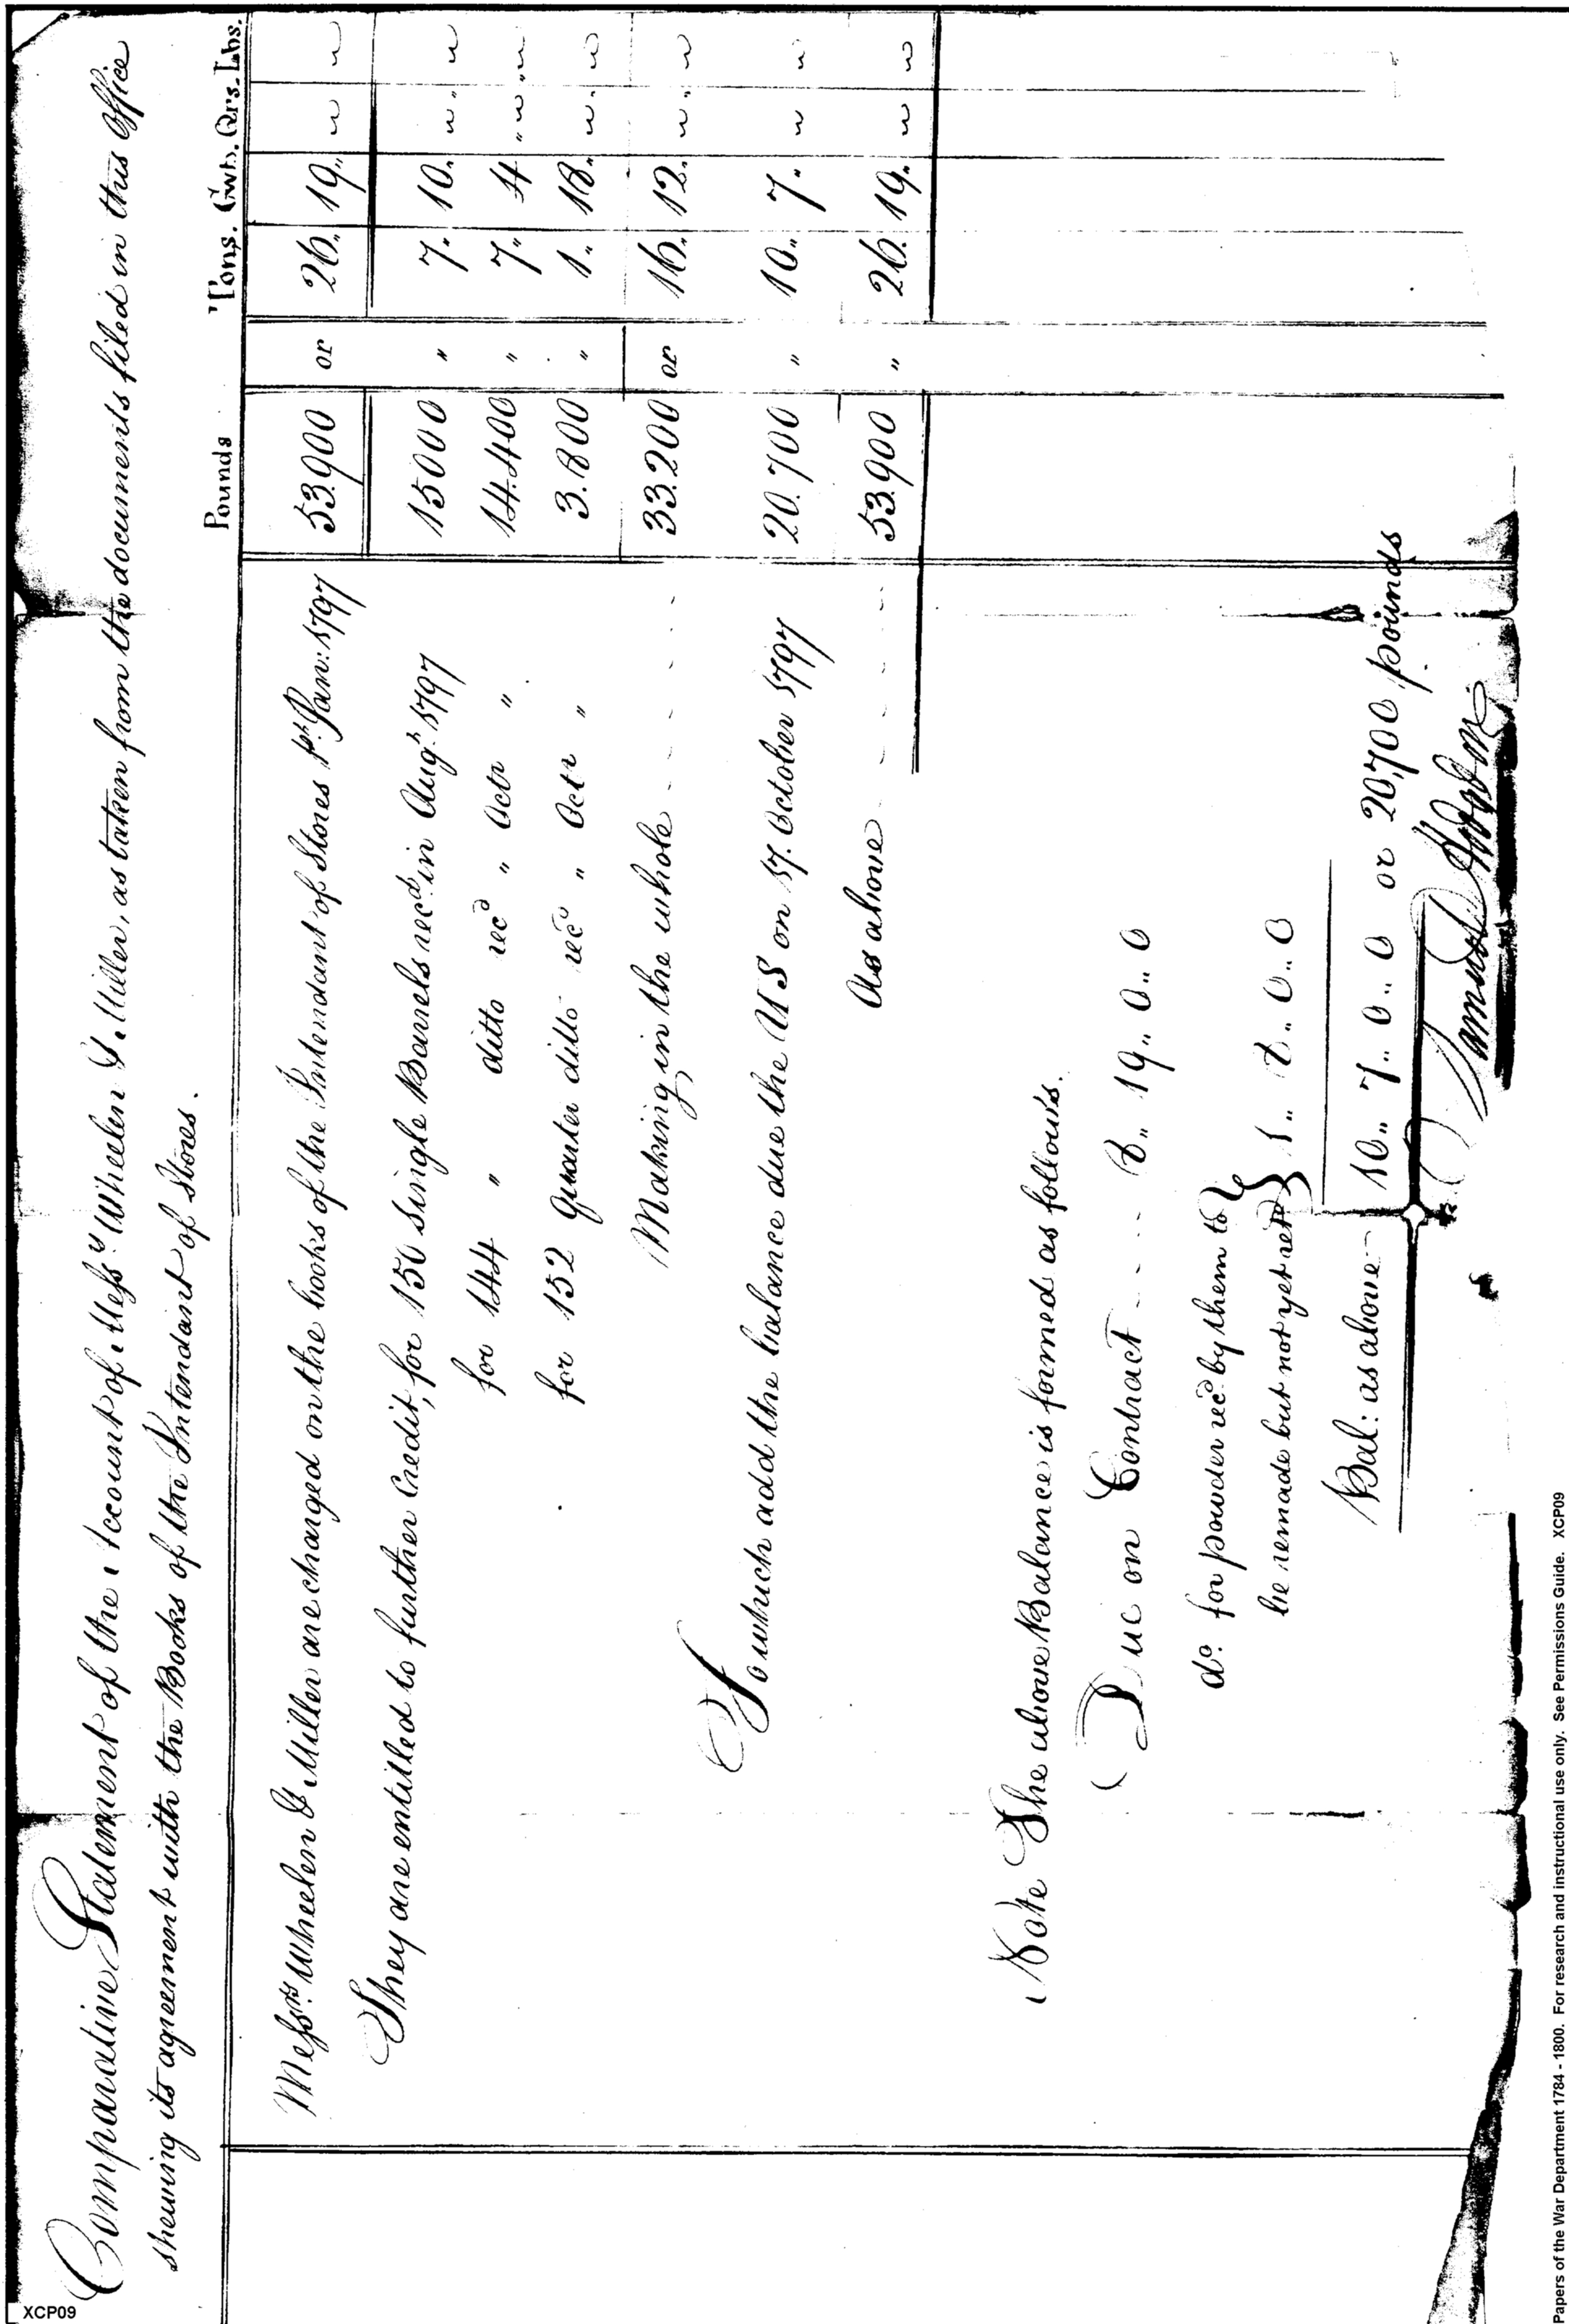 Comparative Statement of the Account of Messrs Wheelen & Miller, as taken from the documents filed in this Office
shewing its agreement with the Books of the Intendant of Stores.
Pounds Tons. Cwts. Qrs. Lbs.
Messrs. Wheelen & Miller are charged on the books of the Intendant of Stores 1st Jan: 1797 53.900 or 26,, 19,, " "
They are entitled to further Credit, for 150 Single Barrels recd. in Augt. 1797 15000 " 7,, 10,, " "
for 144 " ditto recd " Octr " 14.400 " 7,, 4 " "
for 152 quarter ditto recd " Octr " 3.800 " 1,, 18,, " "
Making in the whole 33.200 or 16,, 12,, " "
To which add the balance due the U S on 17. October 1797 20.700 " 10,, 7,, " "
As above 53.900 " 26. 19,, " "
Note The above Balance is formed as follows.
Due on Contract 8,, 19,, 0,, 0
do. for powder recd. by them to
be remade but not yet retd } 1,, 8,, 0,, 0
Bal: as above 10,, 7,, 0,, 0 or 20,700 pounds
Samuel Hodgdon
XCP09
Papers of the War Department 1784 - 1800. For research and instructional use only. See Permissions Guide. XCP09